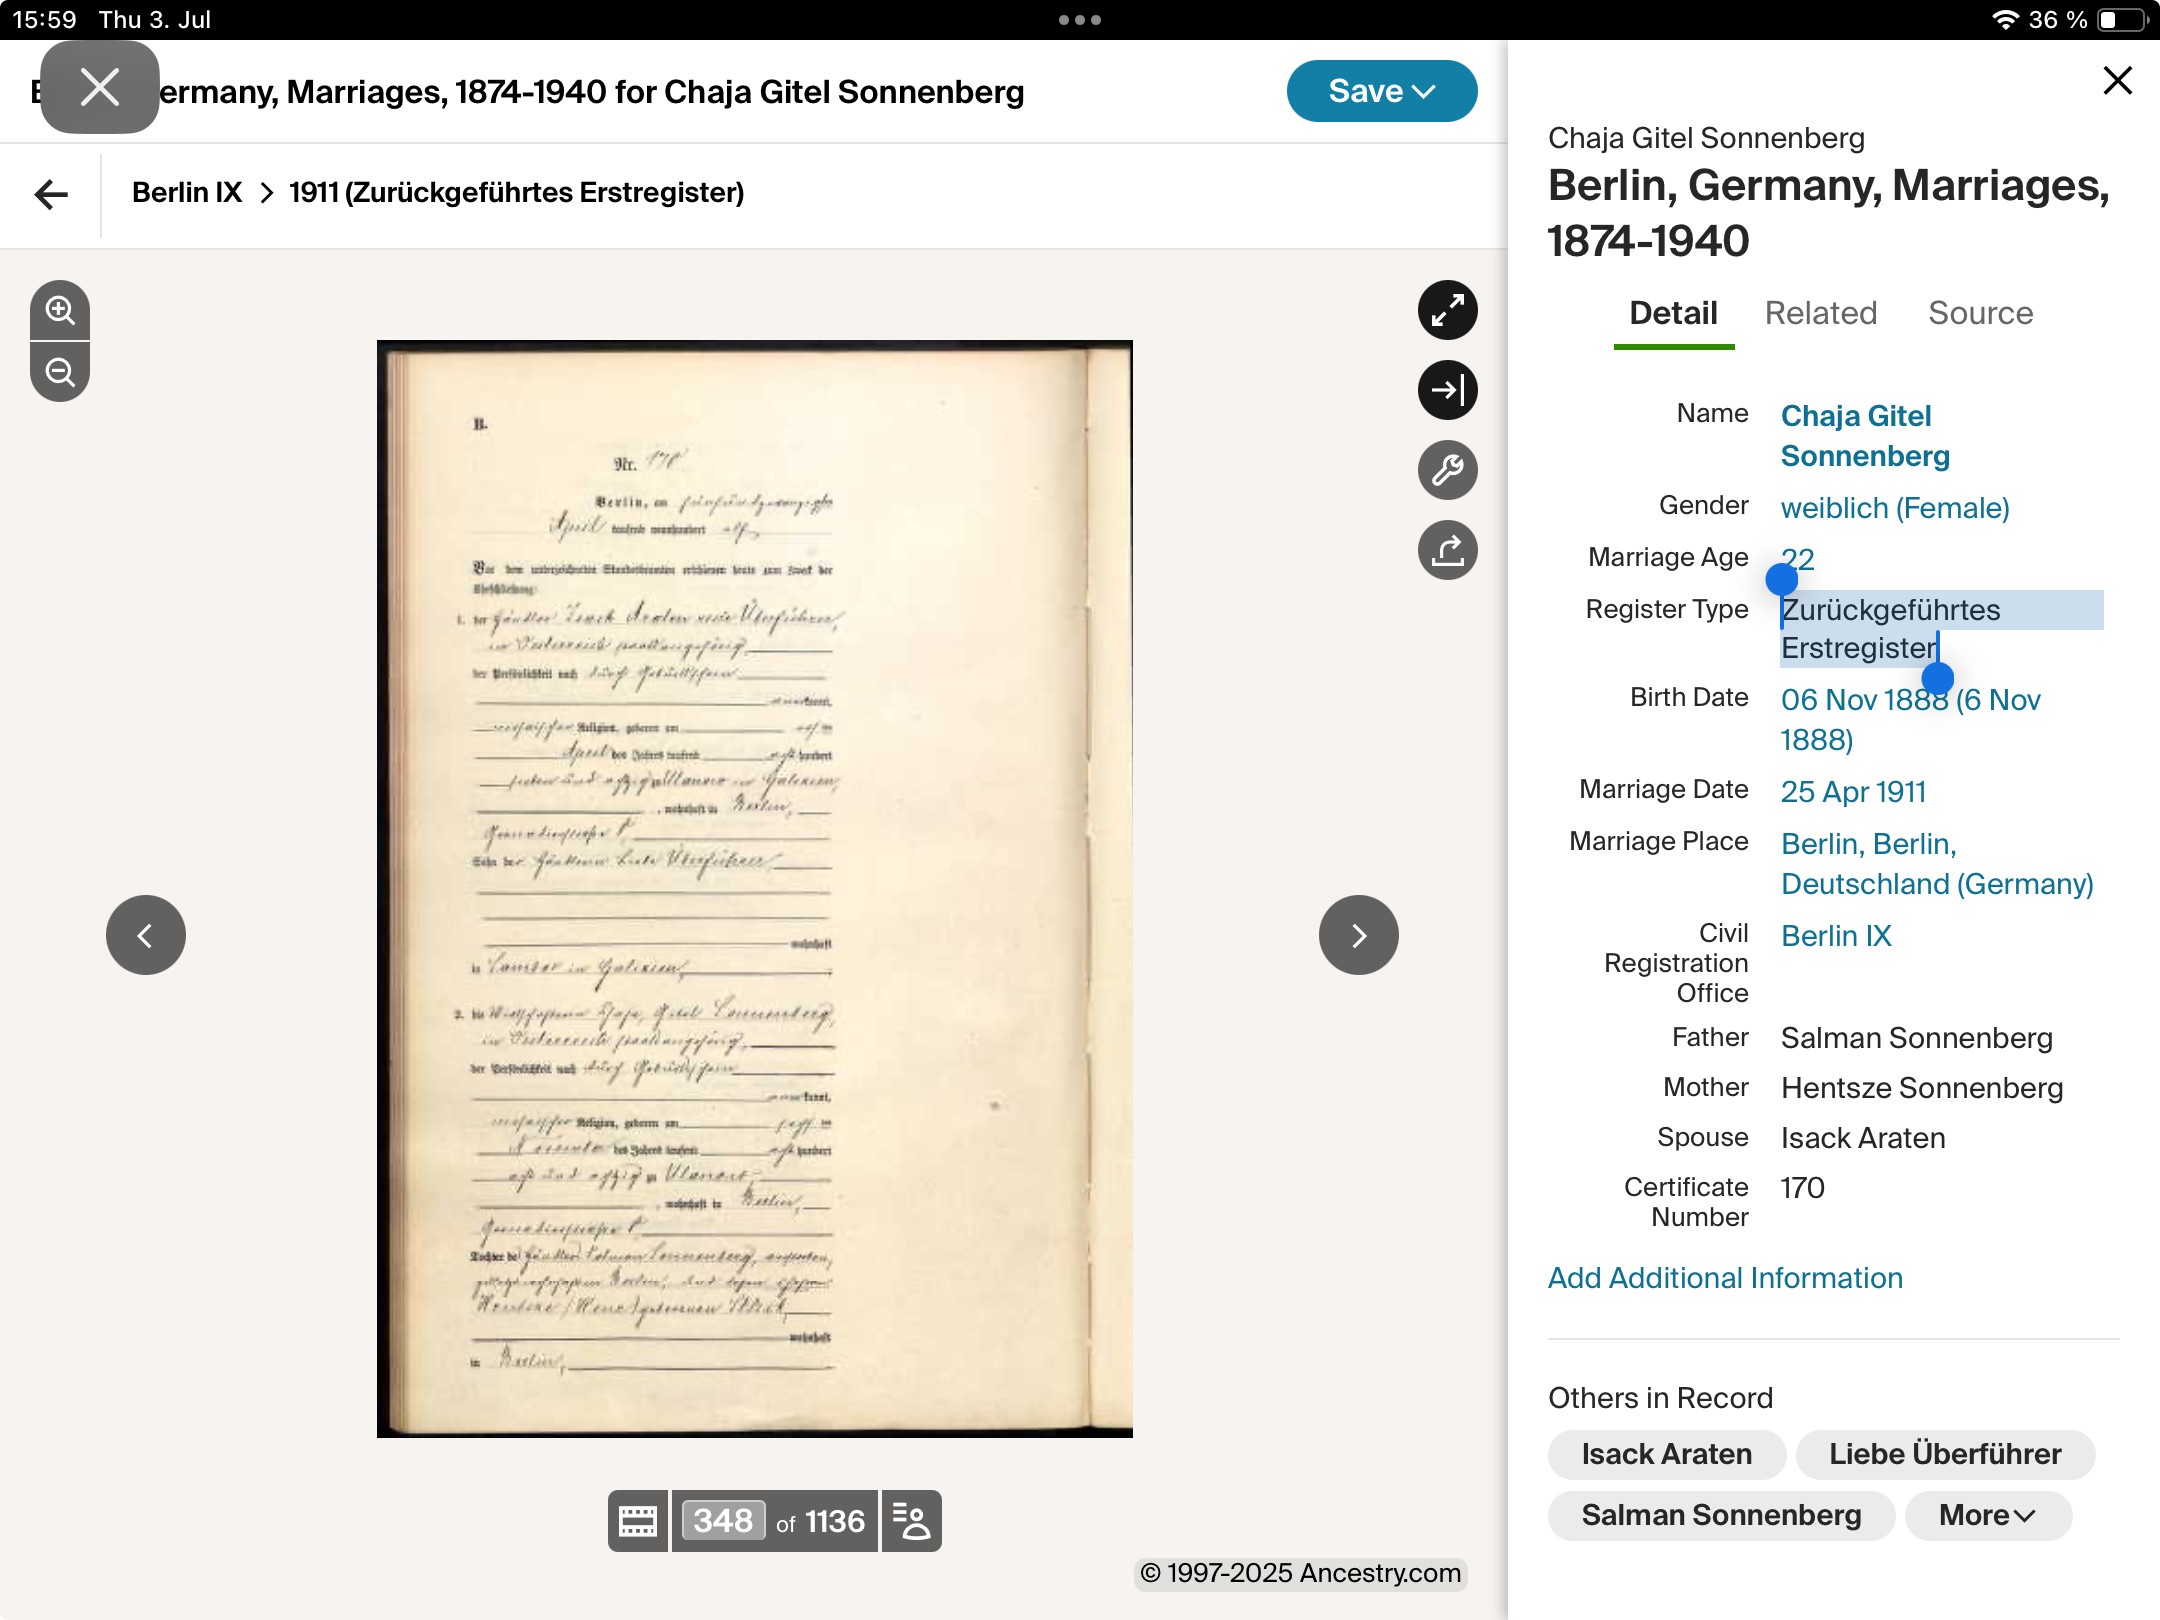 15:59 Thu 3. Jul
36 %
ermany, Marriages, 1874-1940 for Chaja Gitel Sonnenberg
Save
Berlin IX > 1911 (Zurückgeführtes Erstregister)
B.
Nr.
Berlin, am fünfundzwanzigsten
April tausend neunhundert elf
Vor dem unterzeichneten Standesbeamten erschienen heute zum Zweck der
Eheschließung:
1. der Händler Isack Araten Überführer,
in Österreich staatsangehörig,
der Persönlichkeit nach durch Geburtsschein
kannt,
mosaischer Religion, geboren am elften
April des Jahres tausend acht hundert
sieben und achtzig zu Ulanow in Galizien,
, wohnhaft in Berlin,
Grenadierstraße
Sohn der Händlerin Liebe Überführer,
wohnhaft
in Galizien,
2. die Wirtschafterin Chaja Gitel Sonnenberg,
in Österreich staatsangehörig,
der Persönlichkeit nach durch Geburtsschein
kannt,
mosaischer Religion, geboren am sechsten
November des Jahres tausend acht hundert
acht und achtzig zu Ulanow,
, wohnhaft in Berlin,
Grenadierstraße
Tochter des Händlers Salman Sonnenberg, verstorben,
zuletzt wohnhaft in Berlin, und dessen Ehefrau
geborenen
wohnhaft
in Berlin,
348 of 1136
© 1997-2025 Ancestry.com
Chaja Gitel Sonnenberg
Berlin, Germany, Marriages,
1874-1940
Detail Related Source
Name Chaja Gitel
Sonnenberg
Gender weiblich (Female)
Marriage Age 22
Register Type Zurückgeführtes
Erstregister
Birth Date 06 Nov 1888 (6 Nov
1888)
Marriage Date 25 Apr 1911
Marriage Place Berlin, Berlin,
Deutschland (Germany)
Civil Berlin IX
Registration
Office
Father Salman Sonnenberg
Mother Hentsze Sonnenberg
Spouse Isack Araten
Certificate 170
Number
Add Additional Information
Others in Record
Isack Araten Liebe Überführer
Salman Sonnenberg More